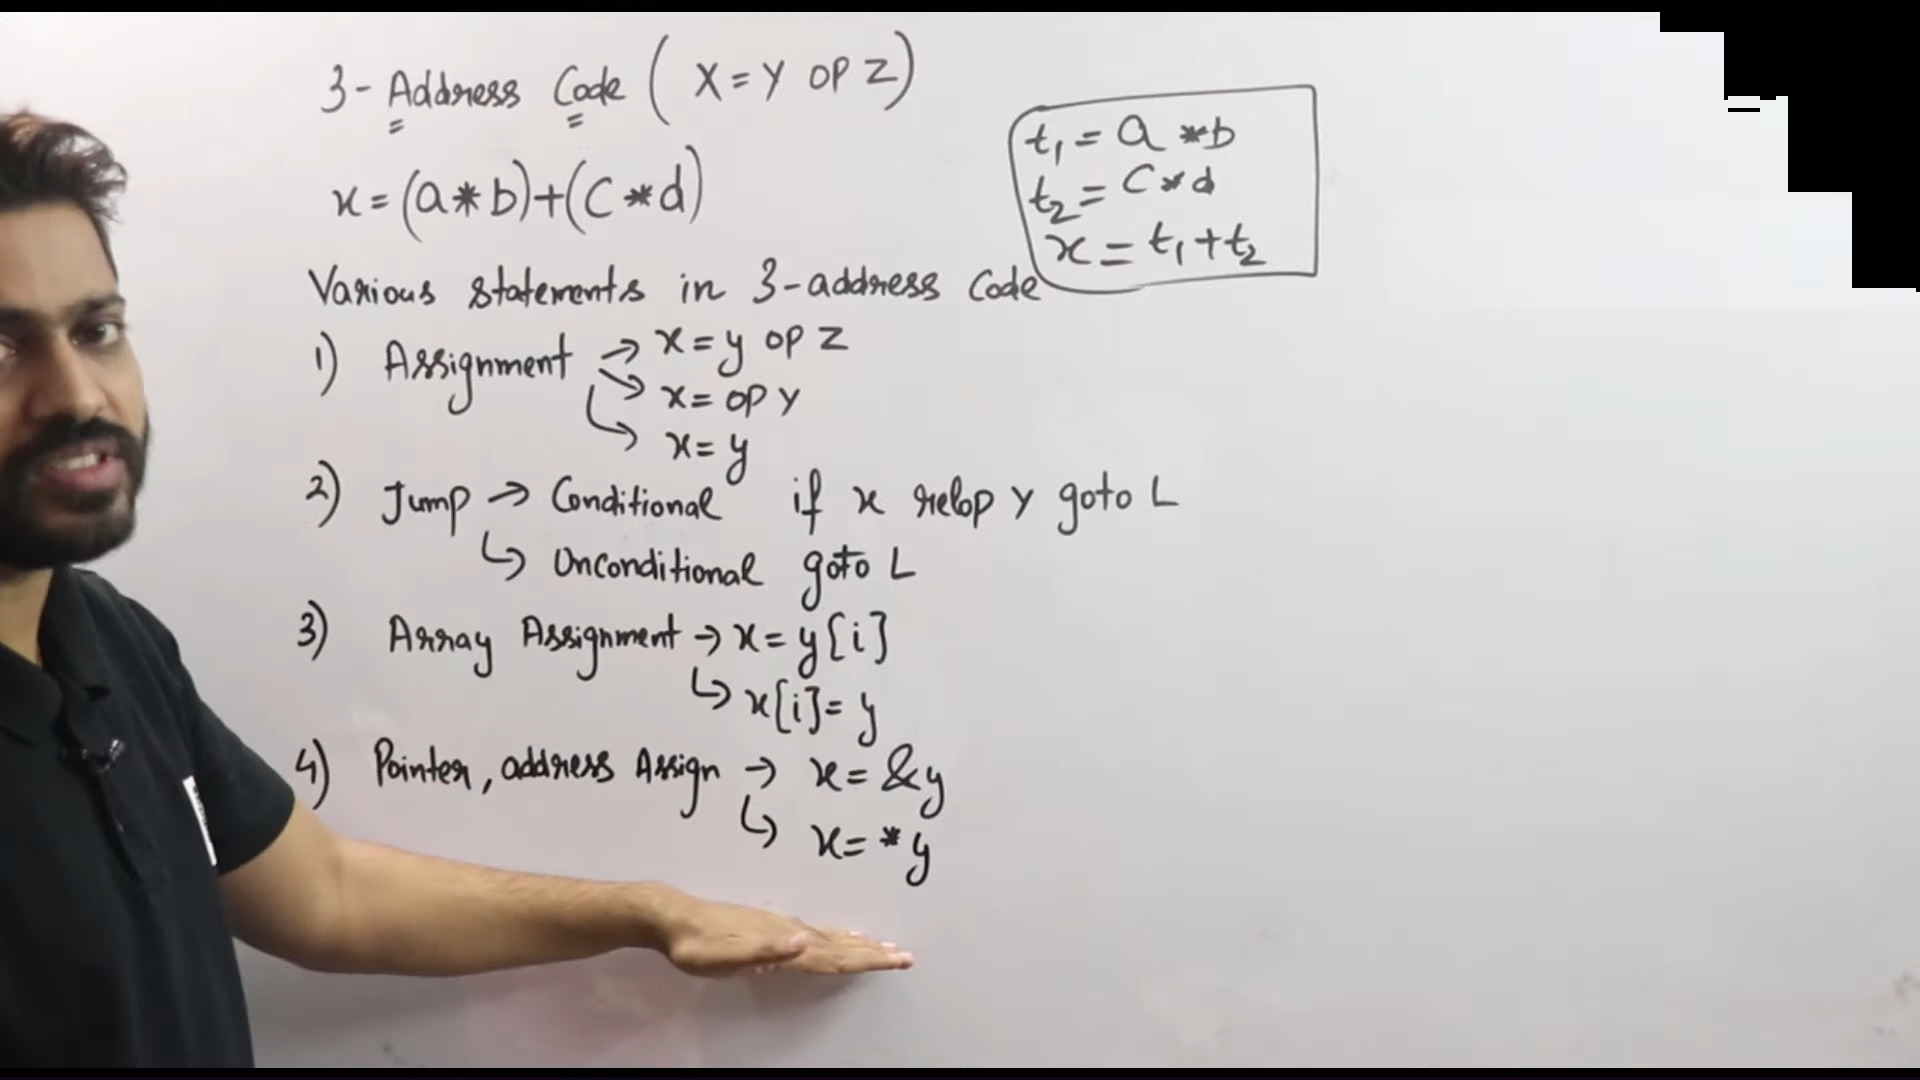 3-Address Code ( X = Y OP Z )
x = (a * b) + (c * d)
t1 = a * b
t2 = c * d
x = t1 + t2
Various statements in 3-address Code
1) Assignment → x = y op z
↘ x = op y
↳ x = y
2) Jump → Conditional if x relop y goto L
↳ Unconditional goto L
3) Array Assignment → x = y[i]
↳ x[i] = y
4) Pointer, address Assign → x = &y
↳ x = *y